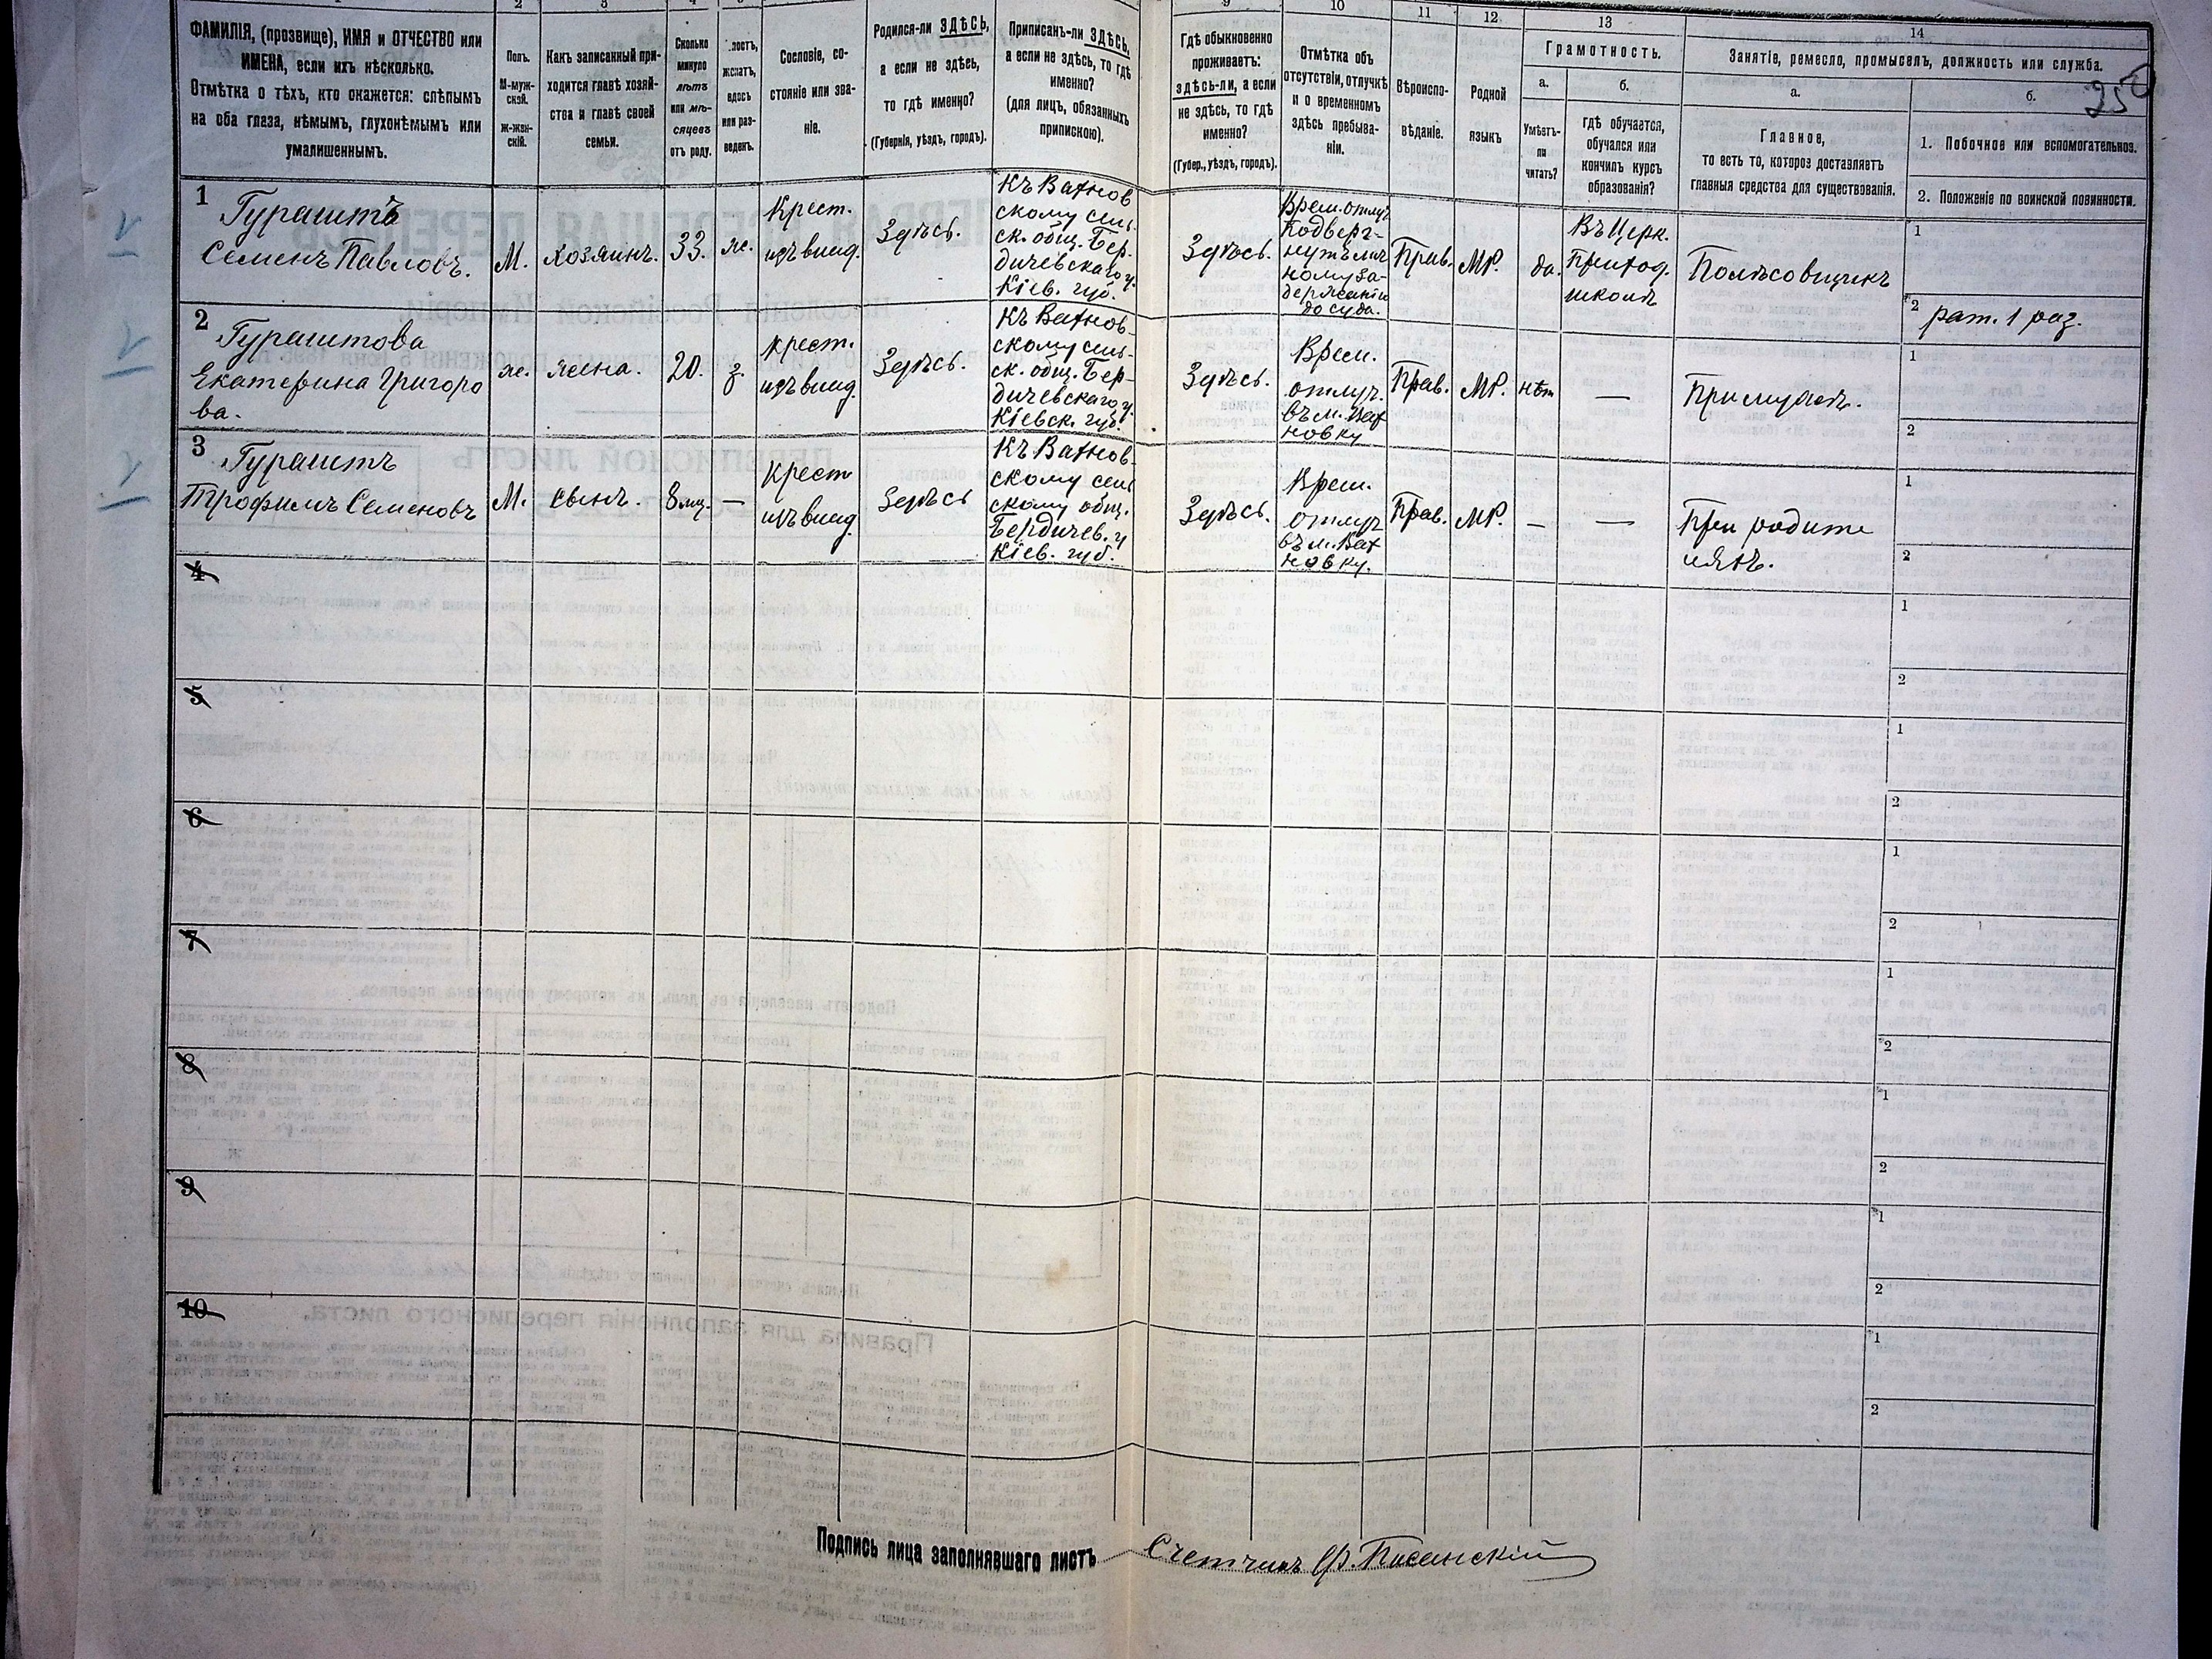 2
3
4
9
10
11
12
13
14
ФАМИЛІЯ, (прозвище), ИМЯ и ОТЧЕСТВО или
ИМЕНА, если ихъ нѣсколько.
Отмѣтка о тѣхъ, кто окажется: слѣпымъ
на оба глаза, нѣмымъ, глухонѣмымъ или
умалишеннымъ.
Полъ.
М-муж-
ской.
Ж-жен-
скій.
Какъ записанный при-
ходится главѣ хозяй-
ства и главѣ своей
семьи.
Сколько
минуло
лѣтъ
или мѣ-
сяцевъ
отъ роду.
женатъ,
вдовъ
или раз-
веденъ.
Сословіе, со-
стояніе или зва-
ніе.
Родился-ли ЗДѢСЬ,
а если не здѣсь,
то гдѣ именно?
(Губернія, уѣздъ, городъ).
Приписанъ-ли ЗДѢСЬ,
а если не здѣсь, то гдѣ
именно?
(для лицъ, обязанныхъ
припискою).
Гдѣ обыкновенно
проживаетъ:
здѣсь-ли, а если
не здѣсь, то гдѣ
именно?
(Губер., уѣздъ, городъ).
Отмѣтка объ
отсутствіи, отлучкѣ
и о временномъ
здѣсь пребыва-
ніи.
Вѣроиспо-
вѣданіе.
Родной
языкъ
Грамотность.
а.
б.
Умѣетъ-
ли
читать?
гдѣ обучается,
обучался или
кончилъ курсъ
образованія?
Занятіе, ремесло, промыселъ, должность или служба.
а.
б.
Главное,
то есть то, которое доставляетъ
главныя средства для существованія.
1. Побочное или вспомогательное.
2. Положеніе по воинской повинности.
1
Гураштъ
Семенъ Павловъ.
М.
хозяинъ.
33.
ж.
Крест.
изъ влад.
Здѣсь.
Къ Вахнов
скому сель.
ск. общ. Бер.
дичевскаго у.
Кіев. губ.
Здѣсь.
Врем. отлуч
Подверг-
нутъ лич
ному за-
держанію
до суда.
Прав.
МР.
да.
Въ Церк.
Приход.
школѣ
Полѣсовщикъ
1
2 рат. 1 раз.
2
Гураштова
Екатерина Григоро
ва.
ж.
жена.
20.
з.
крест.
изъ влад.
Здѣсь.
Къ Вахнов-
скому сель-
ск. общ. Бер-
дичевскаго у.
Кіевск. губ.
Здѣсь.
Врем.
отлуч.
въ м. Вах
новку
Прав.
МР.
нѣт
—
При мужѣ.
1
2
3
Гураштъ
Трофимъ Семеновъ
М.
сынъ.
8 мц.
—
Крест
изъ влад.
Здѣсь
Къ Вахнов-
скому сель
скому общ.
Бердичев. у
Кіев. губ.
Здѣсь.
Врем.
отлуч
въ м. Вах
новку.
Прав.
МР.
—
—
При родите
ляхъ.
1
2
4
1
2
5
1
2
6
1
2
7
1
2
8
1
2
9
1
2
10
1
2
Подпись лица заполнявшаго листъ
Счетчикъ